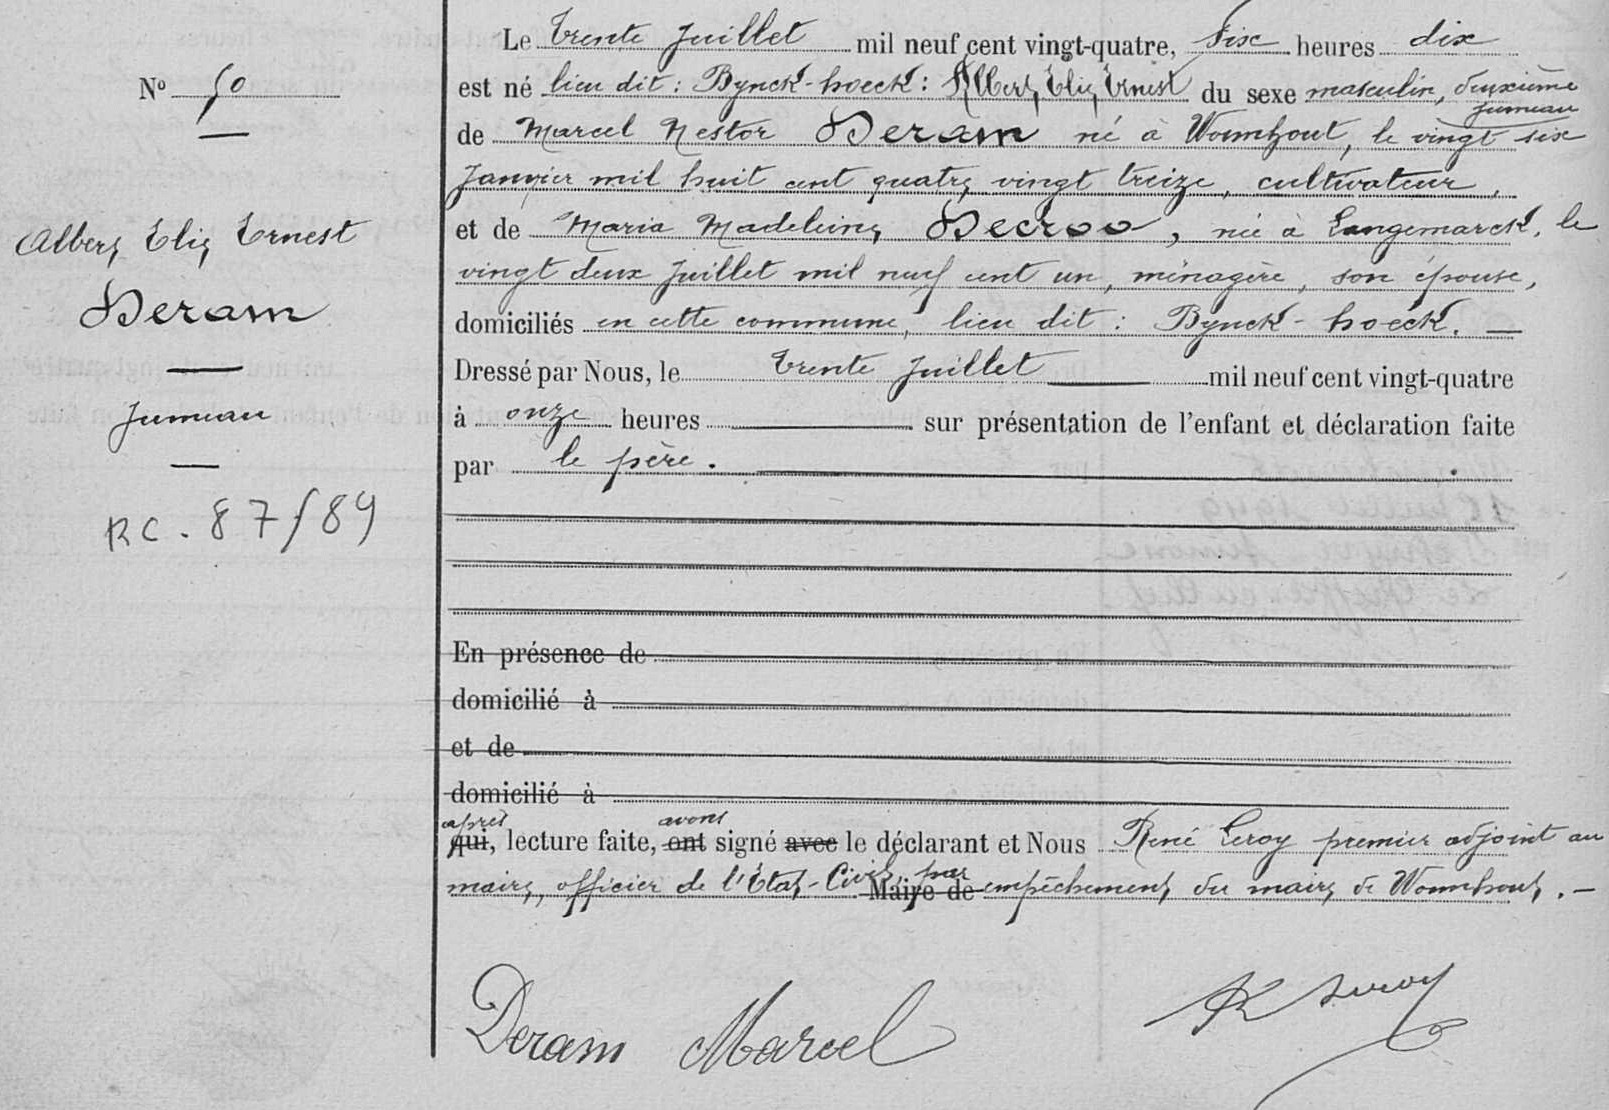 N° 50
Albert, Elie, Ernest
Deram
Jumeau
RC. 87/89
Le trente Juillet mil neuf cent vingt-quatre, six heures dix
est né lieu dit : Bynck-hoeck : Albert, Elie, Ernest du sexe masculin, deuxième jumeau
de Marcel Nestor Deram né à Wormhout, le vingt six
Janvier mil huit cent quatre vingt treize, cultivateur,
et de Maria Madeleine Decroo, née à Langemarck, le
vingt deux Juillet mil neuf cent un, ménagère, son épouse,
domiciliés en cette commune, lieu dit : Bynck-hoeck.
Dressé par Nous, le trente Juillet mil neuf cent vingt-quatre
à onze heures sur présentation de l'enfant et déclaration faite
par le père.
En présence de
domicilié à
et de
domicilié à
après avons
qui, lecture faite, ont signé avec le déclarant et Nous René Leroy premier adjoint au
maire, officier de l'Etat-Civil, par Maire de empêchement du maire de Wormhout.
Deram Marcel
R Leroy